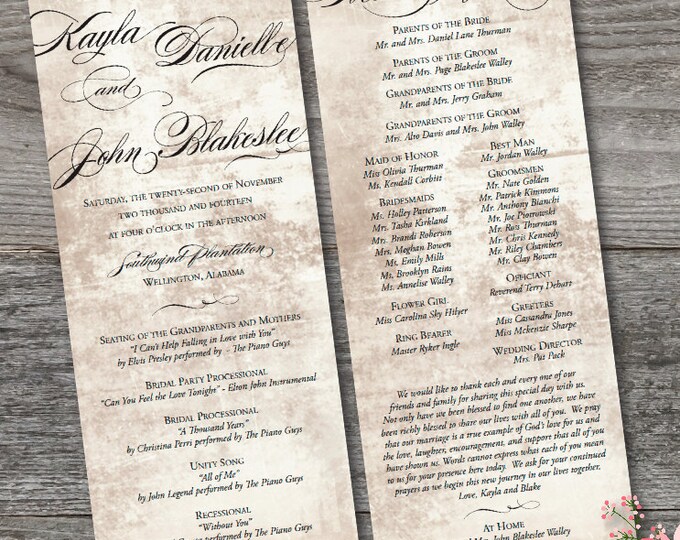 Kayla Danielle
and
John Blakeslee
Saturday, the twenty-second of November
two thousand and fourteen
at four o'clock in the afternoon
Southwind Plantation
Wellington, Alabama
Seating of the Grandparents and Mothers
"I Can't Help Falling in Love with You"
by Elvis Presley performed by - The Piano Guys
Bridal Party Processional
"Can You Feel the Love Tonight" - Elton John Instrumental
Bridal Processional
"A Thousand Years"
by Christina Perri performed by The Piano Guys
Unity Song
"All of Me"
by John Legend performed by The Piano Guys
Recessional
"Without You"
by David Guetta performed by The Piano Guys
Parents of the Bride
Mr. and Mrs. Daniel Lane Thurman
Parents of the Groom
Mr. and Mrs. Page Blakeslee Walley
Grandparents of the Bride
Mr. and Mrs. Jerry Graham
Grandparents of the Groom
Mrs. Alto Davis and Mrs. John Walley
Maid of Honor
Miss Olivia Thurman
Ms. Kendall Corbitt
Bridesmaids
Ms. Holley Patterson
Mrs. Tasha Kirkland
Mrs. Brandi Roberson
Mrs. Meghan Bowen
Ms. Emily Mills
Ms. Brooklyn Rains
Mrs. Annelise Walley
Flower Girl
Miss Carolina Sky Hilyer
Ring Bearer
Master Ryker Ingle
Best Man
Mr. Jordan Walley
Groomsmen
Mr. Nate Golden
Mr. Patrick Kimmons
Mr. Anthony Bianchi
Mr. Joe Piotrowski
Mr. Ross Thurman
Mr. Chris Kennedy
Mr. Riley Chambers
Mr. Clay Bowen
Officiant
Reverend Terry Dehart
Greeters
Miss Cassandra Jones
Miss Mckenzie Sharpe
Wedding Director
Mrs. Pat Pack
We would like to thank each and every one of our
friends and family for sharing this special day with us.
Not only have we been blessed to find one another, we have
been richly blessed to share our lives with all of you. We pray
that our marriage is a true example of God's love for us and
the love, laughter, encouragement, and support that all of you
have shown us. Words cannot express what each of you mean
to us for your presence here today. We ask for your continued
prayers as we begin this new journey in our lives together.
Love, Kayla and Blake
At Home
Mr. and Mrs. John Blakeslee Walley